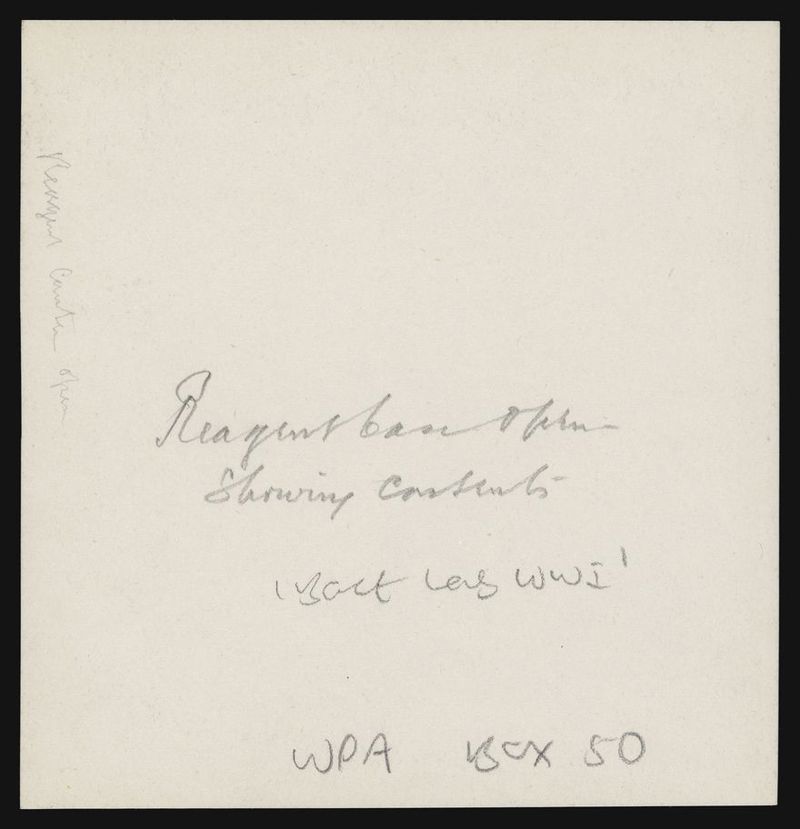 Reagent open
Reagent case open
Showing contents
'Bact Lab WWI'
WPA BOX 50